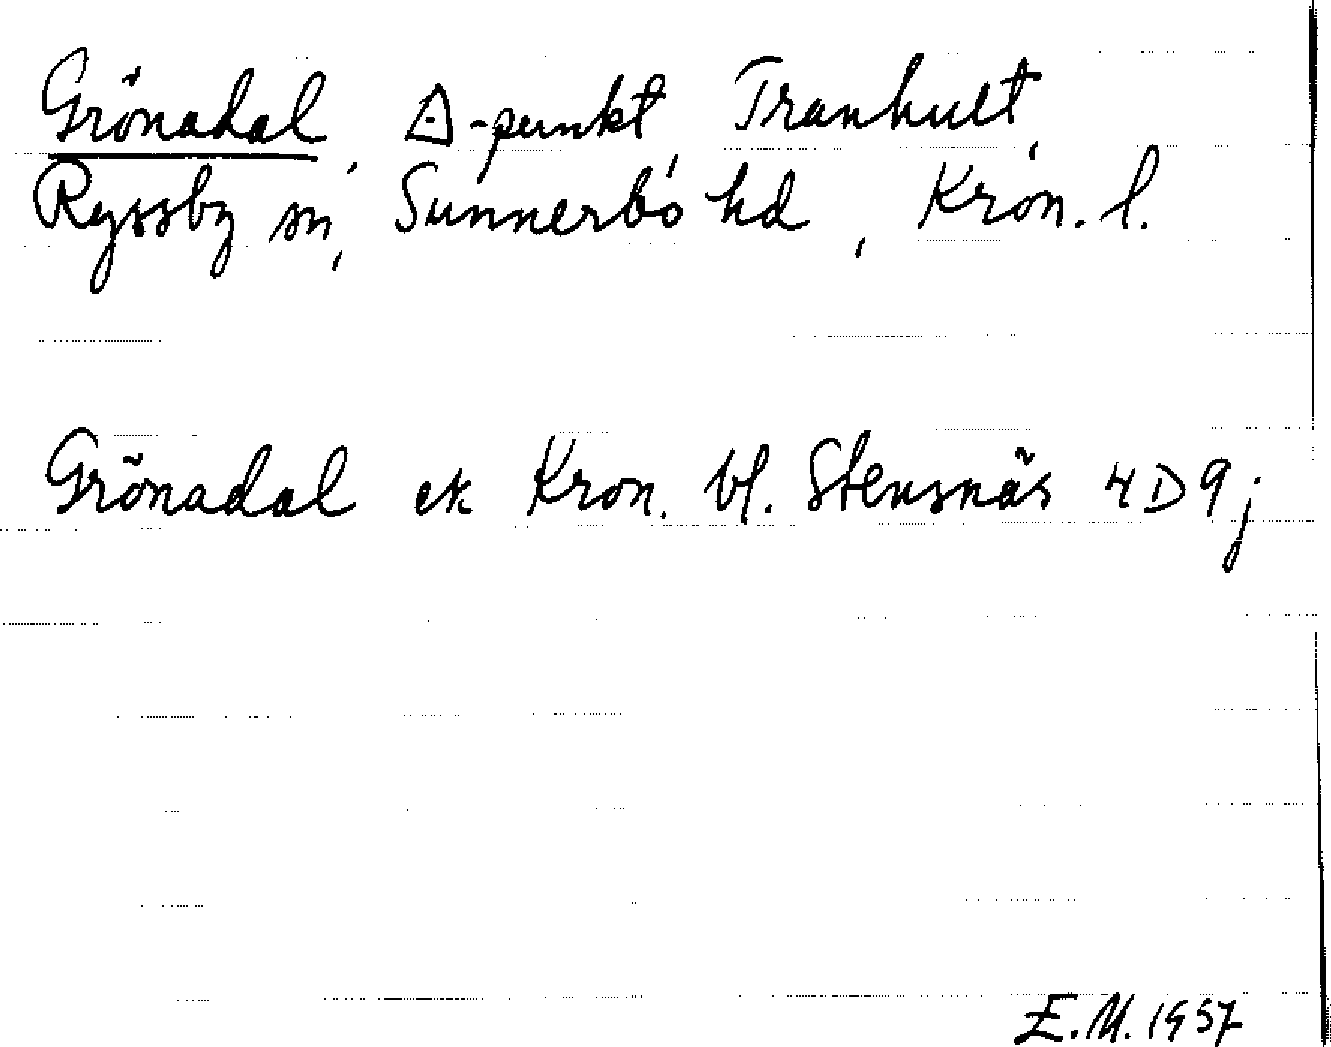 Grönadal, △-punkt, Tranhult,
Ryssby sn, Sunnerbo hd, Kron. l.
Grönadal ek Kron. bl. Stensnäs 4D9j
E.M. 1957